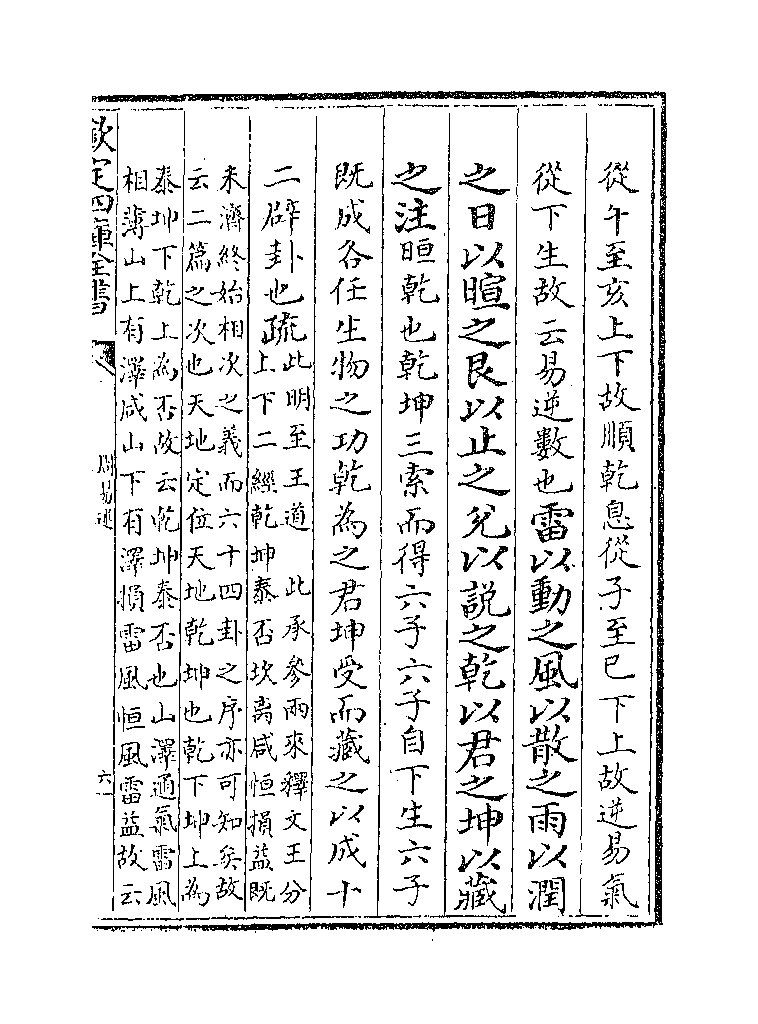 從午至亥上下故順乾息從子至巳下上故逆易氣
從下生故云易逆數也雷以動之風以散之雨以潤
之日以晅之艮以止之兌以說之乾以君之坤以藏
之注晅乾也乾坤三索而得六子六子自下生六子
既成各任生物之功乾為之君坤受而藏之以成十
二辟卦也疏此明至王道 此承參兩來釋文王分
上下二經乾坤泰否坎离咸恒損益既
未濟終始相次之義而六十四卦之序亦可知矣故
云二篇之次也天地定位天地乾坤也乾下坤上為
泰坤下乾上為否故云乾坤泰否也山澤通氣雷風
相薄山上有澤咸山下有澤損雷風恒風雷益故云
欽定四庫全書
周易述
六